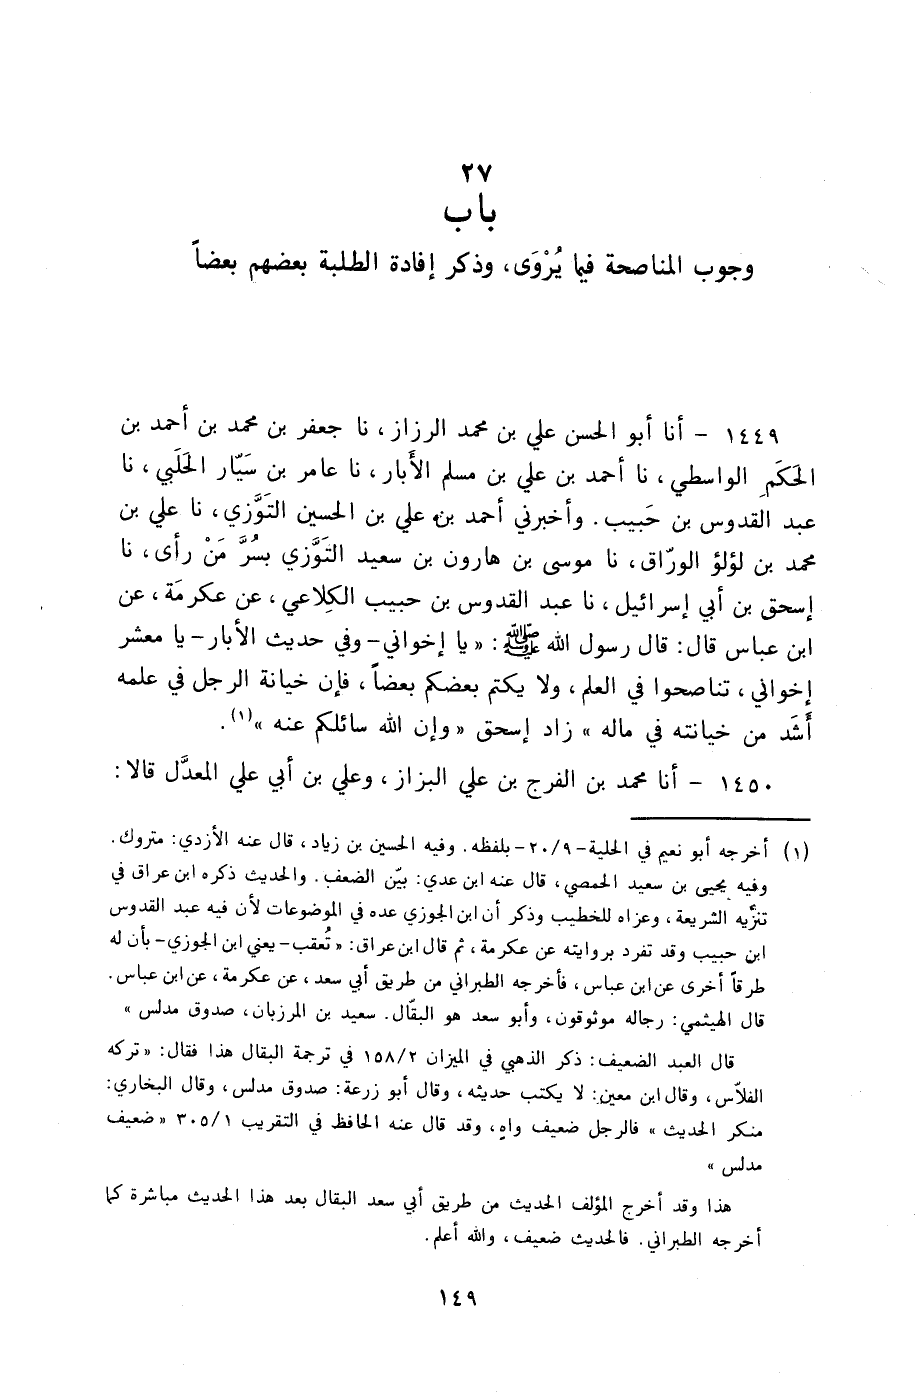 ٢٧
باب
وجوب المناصحة فيما يُرْوَى، وذكر إفادة الطلبة بعضهم بعضاً
١٤٤٩ - أنا أبو الحسن علي بن محمد الرزاز، نا جعفر بن محمد بن أحمد بن
الحَكَمِ الواسطي، نا أحمد بن علي بن مسلم الأَبار، نا عامر بن سَيّار الحَلَبي، نا
عبد القدوس بن حَبيب. وأخبرني أحمد بن علي بن الحسين التَوَّزي، نا علي بن
محمد بن لؤلؤ الورّاق، نا موسى بن هارون بن سعيد التَوَّزي بسُرَّ مَنْ رأى، نا
إسحق بن أبي إسرائيل، نا عبد القدوس بن حبيب الكِلاعي، عن عكرمَة، عن
ابن عباس قال: قال رسول الله ﷺ: « يا إخواني - وفي حديث الأبار - يا معشر
إخواني، تناصحوا في العلم، ولا يكتم بعضكم بعضاً، فإن خيانة الرجل في علمه
أَشَد من خيانته في ماله » زاد إسحق « وإن الله سائلكم عنه »(١).
١٤٥٠ - أنا محمد بن الفرج بن علي البزاز، وعلي بن أبي علي المعدَّل قالا:
(١) أخرجه أبو نعيم في الحلية - ٢٠/٩ - بلفظه. وفيه الحسين بن زياد، قال عنه الأزدي: متروك.
وفيه يحيى بن سعيد الحمصي، قال عنه ابن عدي: بيّن الضعف. والحديث ذكره ابن عراق في
تنزيه الشريعة، وعزاه للخطيب وذكر أن ابن الجوزي عده في الموضوعات لأن فيه عبد القدوس
ابن حبيب وقد تفرد بروايته عن عكرمة، ثم قال ابن عراق: « تُعقب - يعني ابن الجوزي - بأن له
طرقاً أخرى عن ابن عباس، فأخرجه الطبراني من طريق أبي سعد، عن عكرمة، عن ابن عباس.
قال الهيثمي: رجاله موثوقون، وأبو سعد هو البقّال. سعيد بن المرزبان، صدوق مدلس »
قال العبد الضعيف: ذكر الذهبي في الميزان ١٥٨/٢ في ترجمة البقال هذا فقال: « تركه
الفلاّس، وقال ابن معين: لا يكتب حديثه، وقال أبو زرعة: صدوق مدلس، وقال البخاري:
منكر الحديث » فالرجل ضعيف واهٍ، وقد قال عنه الحافظ في التقريب ٣٠٥/١ « ضعيف
مدلس »
هذا وقد أخرج المؤلف الحديث من طريق أبي سعد البقال بعد هذا الحديث مباشرة كما
أخرجه الطبراني. فالحديث ضعيف، والله أعلم.
١٤٩